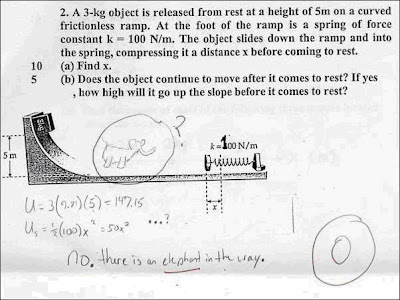 2. A 3-kg object is released from rest at a height of 5m on a curved
frictionless ramp. At the foot of the ramp is a spring of force
constant k = 100 N/m. The object slides down the ramp and into
the spring, compressing it a distance x before coming to rest.
10 (a) Find x.
5 (b) Does the object continue to move after it comes to rest? If yes
, how high will it go up the slope before it comes to rest?
?
k = 100 N/m
5 m
x
U = 3(9.81)(5) = 147.15
Us = ½(100)x² = 50x² ...?
no. there is an elephant in the way.
0